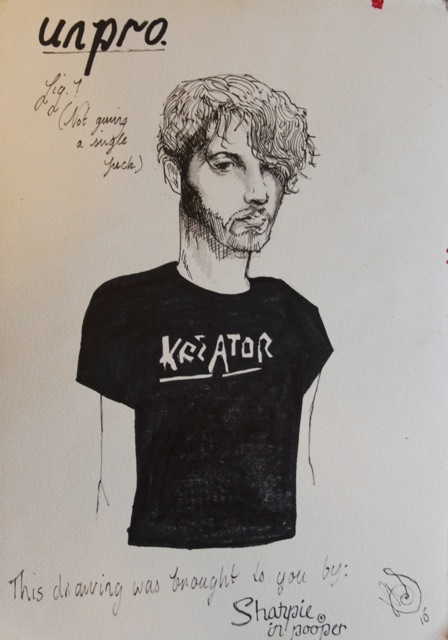 unpro.
fig. 1
(Not giving
a single
fuck)
KREATOR
This drawing was brought to you by:
Sharpie
in pooper